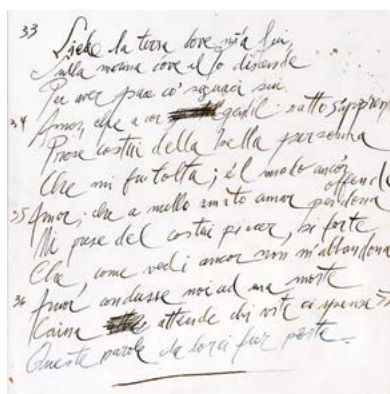 33 Siede la terra dove nata fui
Sulla marina dove il Po discende
Per aver pace co' seguaci sui.
34 Amor, che a cor gentil ratto s'apprende
Prese costui della bella persona
Che mi fu tolta; e'l modo ancor offende
35 Amor, che a nullo amato amar perdona
Mi prese del costui piacer, sì forte,
Che, come vedi ancor non m'abbandona
36 Amor condusse noi ad una morte
Caina attende chi vita ci spense
Queste parole da lor ci fur porte.